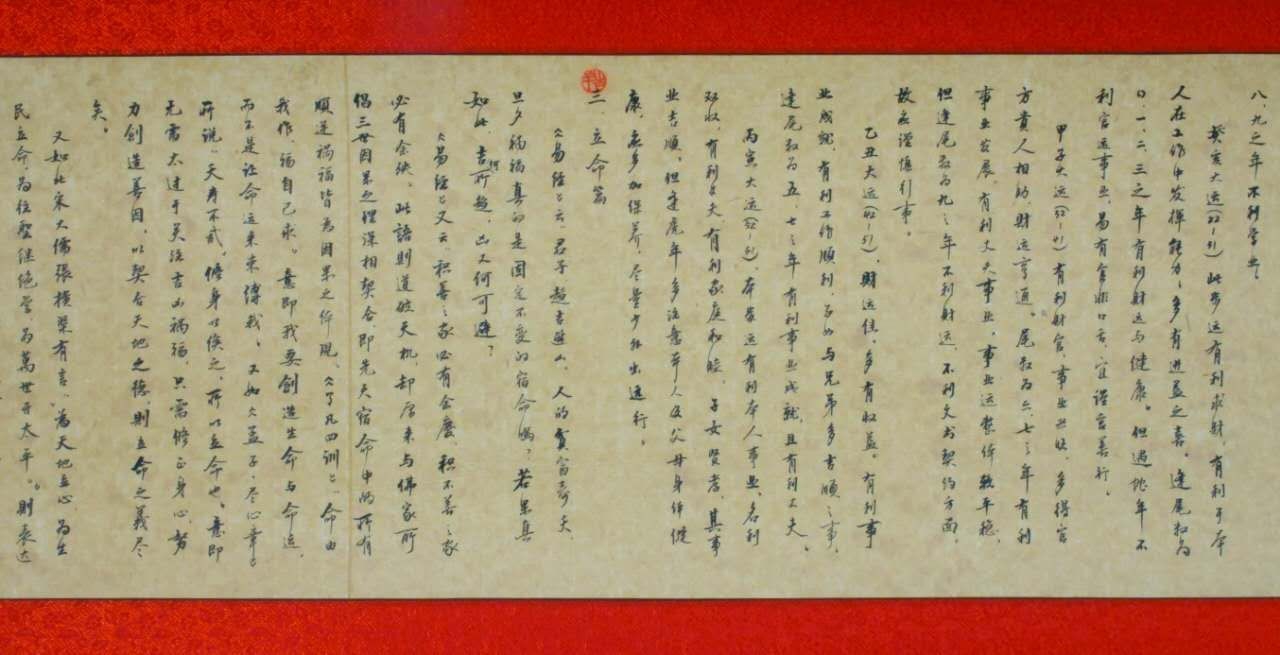 八、九之年不利学业。
癸亥大运(22-31)此步运有利求财，有利于本
人在工作中发挥能力，多有进益之喜。逢尾数为
0、一、二、三之年有利财运与健康。但遇蛇年不
利官运事业，易有官非口舌，宜谨言善行。
甲子大运(32-41)有利财官，事业兴旺，多得官
方贵人相助，财运亨通。尾数为六、七之年有利
事业发展，有利丈夫事业。事业运整体较平稳，
但逢尾数为九之年不利财运，不利文书契约方面，
故应谨慎行事。
乙丑大运(42-51)，财运佳，多有收益。有利事
业成就，有利工作顺利，子女与兄弟多吉顺之事，
逢尾数为五、七之年有利事业成就，且有利丈夫。
丙寅大运(52-61)本步运有利本人事业，名利
双收，有利丈夫，有利家庭和睦，子女贤孝，其事
业吉顺。但逢虎年多注意本人及父母身体健
康，应多加保养，尽量少外出远行。
三、立命篇
《易经》云，君子趋吉避凶，人的贫富寿夭，
旦夕祸福真的是固定不变的宿命吗？若果真
如此，吉何所趋，凶又何可避？
《易经》又云，积善之家必有余庆，积不善之家
必有余殃。此语则道破天机，却原来与佛家所
倡三世因果之理深相契合，即先天宿命中的所有
顺逆祸福皆为因果之体现。《了凡四训》，命由
我作，福自己求。意即我要创造生命与命运，
而不是让命运来束缚我。又如《孟子·尽心章》
所说，夭寿不贰，修身以俟之，所以立命也。意即
无需太过于关注吉凶祸福，只需修正身心，努
力创造善因，以契合天地之德，则立命之义尽
矣。
又如北宋大儒张横渠有言，为天地立心，为生
民立命，为往圣继绝学，为万世开太平。则表达